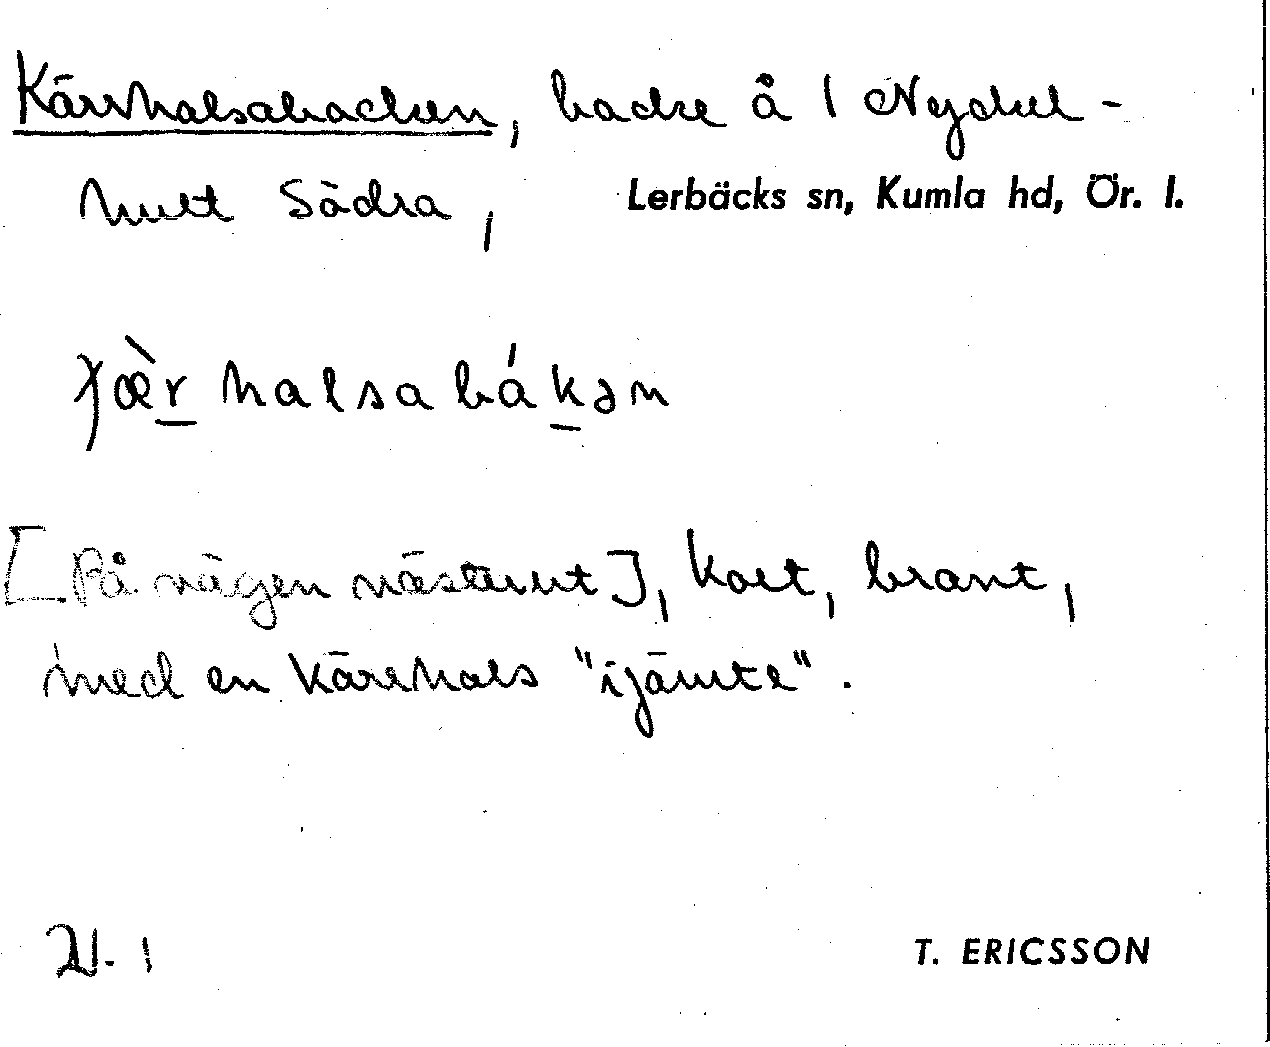 Kärrhalsabacken, backe å 1 Nyckel-
hult Södra, Lerbäcks sn, Kumla hd, Ör. l.
halsabákən
[På vägen västerut], kort, brant,
med en kärrhals "ijämte".
T. ERICSSON